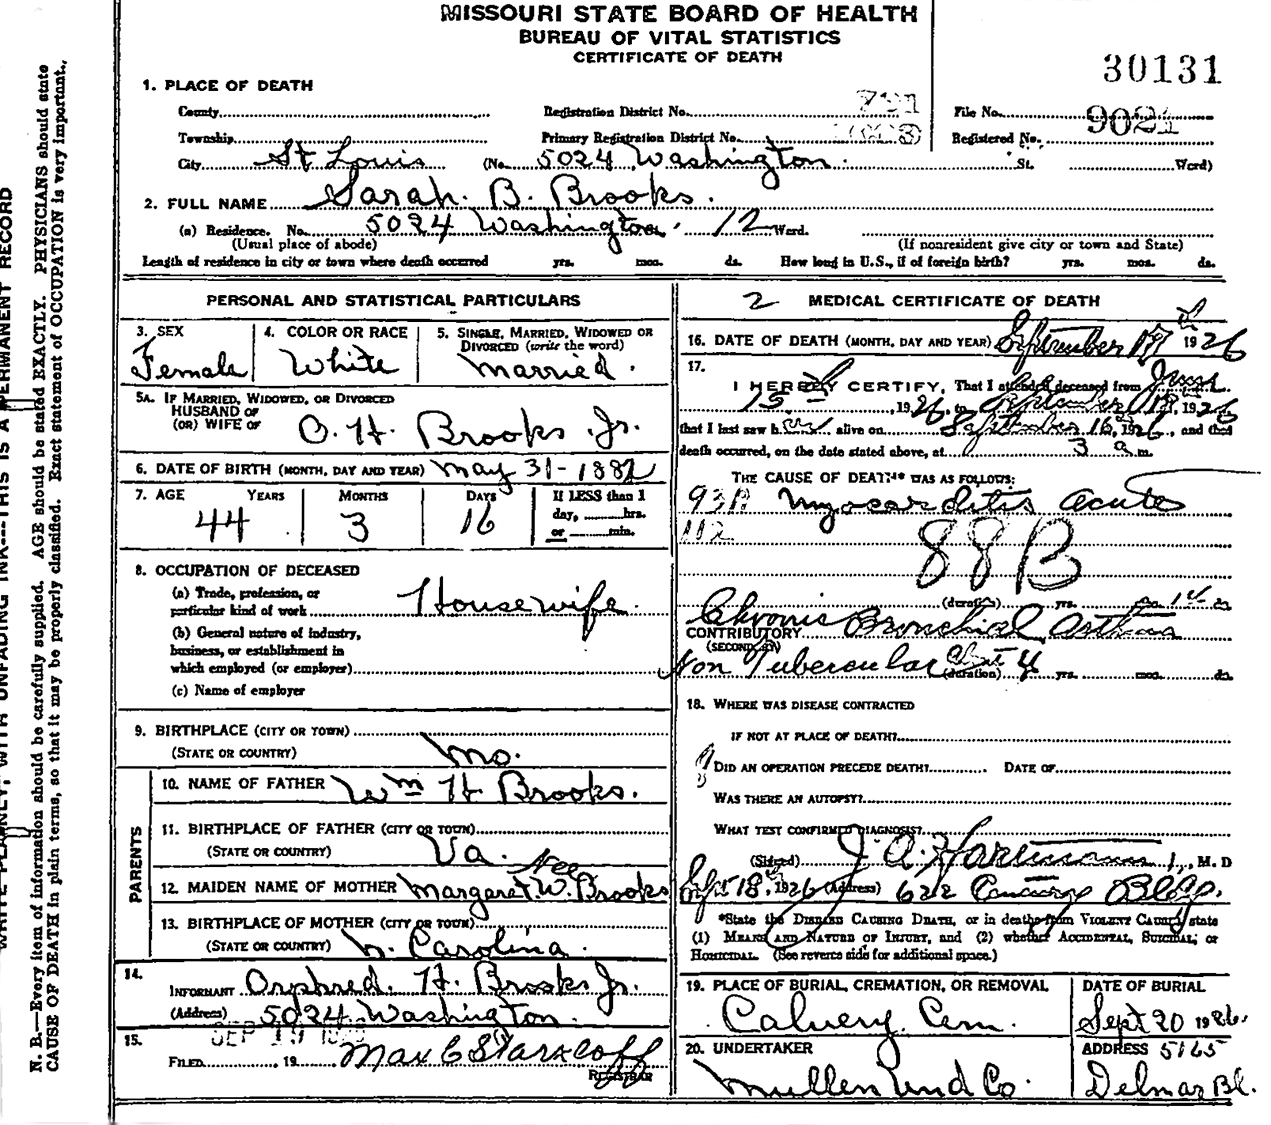 MISSOURI STATE BOARD OF HEALTH
BUREAU OF VITAL STATISTICS
CERTIFICATE OF DEATH
30131
1. PLACE OF DEATH
County
Registration District No. 791
File No.
Township
Primary Registration District No. 1003
Registered No. 9021
City St Louis (No. 5024 Washington St. Ward)
2. FULL NAME Sarah. B. Brooks.
(a) Residence. No. 5024 Washington 12 Ward.
(Usual place of abode) (If nonresident give city or town and State)
Length of residence in city or town where death occurred yrs. mos. ds. How long in U.S., if of foreign birth? yrs. mos. ds.
PERSONAL AND STATISTICAL PARTICULARS
3. SEX
Female
4. COLOR OR RACE
White
5. SINGLE, MARRIED, WIDOWED OR
DIVORCED (write the word)
Married.
5A. IF MARRIED, WIDOWED, OR DIVORCED
HUSBAND OF
(OR) WIFE OF O. H. Brooks Jr.
6. DATE OF BIRTH (MONTH, DAY AND YEAR) May 31-1882
7. AGE YEARS MONTHS DAYS If LESS than 1
day, hrs.
or min.
44 3 16
8. OCCUPATION OF DECEASED
(a) Trade, profession, or
particular kind of work Housewife.
(b) General nature of industry,
business, or establishment in
which employed (or employer)
(c) Name of employer
9. BIRTHPLACE (CITY OR TOWN)
(STATE OR COUNTRY) Mo.
PARENTS
10. NAME OF FATHER Wm H Brooks.
11. BIRTHPLACE OF FATHER (CITY OR TOWN)
(STATE OR COUNTRY) Va.
12. MAIDEN NAME OF MOTHER Margaret W. Nee Brooks
13. BIRTHPLACE OF MOTHER (CITY OR TOWN)
(STATE OR COUNTRY) N. Carolina.
14.
INFORMANT H. Brooks Jr.
(Address) 5024 Washington.
15. SEP 19
FILED 19 Max C Starkloff
REGISTRAR
2 MEDICAL CERTIFICATE OF DEATH
16. DATE OF DEATH (MONTH, DAY AND YEAR) September 1926
17.
I HEREBY CERTIFY, That I attended deceased from June
15, 1926, to September 1926
that I last saw h alive on September 16, 1926, and that
death occurred, on the date stated above, at 3 a.m.
THE CAUSE OF DEATH* WAS AS FOLLOWS:
Myocarditis acute
112
88B
(duration) yrs. mos. ds.
Chronic Bronchial asthma
CONTRIBUTORY
(SECONDARY)
Non Tubercular
(duration) 4 yrs. mos. ds.
18. WHERE WAS DISEASE CONTRACTED
IF NOT AT PLACE OF DEATH?
DID AN OPERATION PRECEDE DEATH? DATE OF
WAS THERE AN AUTOPSY?
WHAT TEST CONFIRMED DIAGNOSIS?
(Signed) J. A. , M. D
Sept 18, 1926 (Address) 622 Bldg.
*State the DISEASE CAUSING DEATH, or in deaths from VIOLENT CAUSES, state
(1) MEANS AND NATURE OF INJURY, and (2) whether ACCIDENTAL, SUICIDAL, or
HOMICIDAL. (See reverse side for additional space.)
19. PLACE OF BURIAL, CREMATION, OR REMOVAL
Calvery Cem.
DATE OF BURIAL
Sept 20 1926
20. UNDERTAKER
Mullen Und Co.
ADDRESS 5165
Delmar Bl.
N. B.—Every item of information should be carefully supplied. AGE should be stated EXACTLY. PHYSICIANS should state
CAUSE OF DEATH in plain terms, so that it may be properly classified. Exact statement of OCCUPATION is very important.
WITH UNFADING INK---THIS IS A PERMANENT RECORD